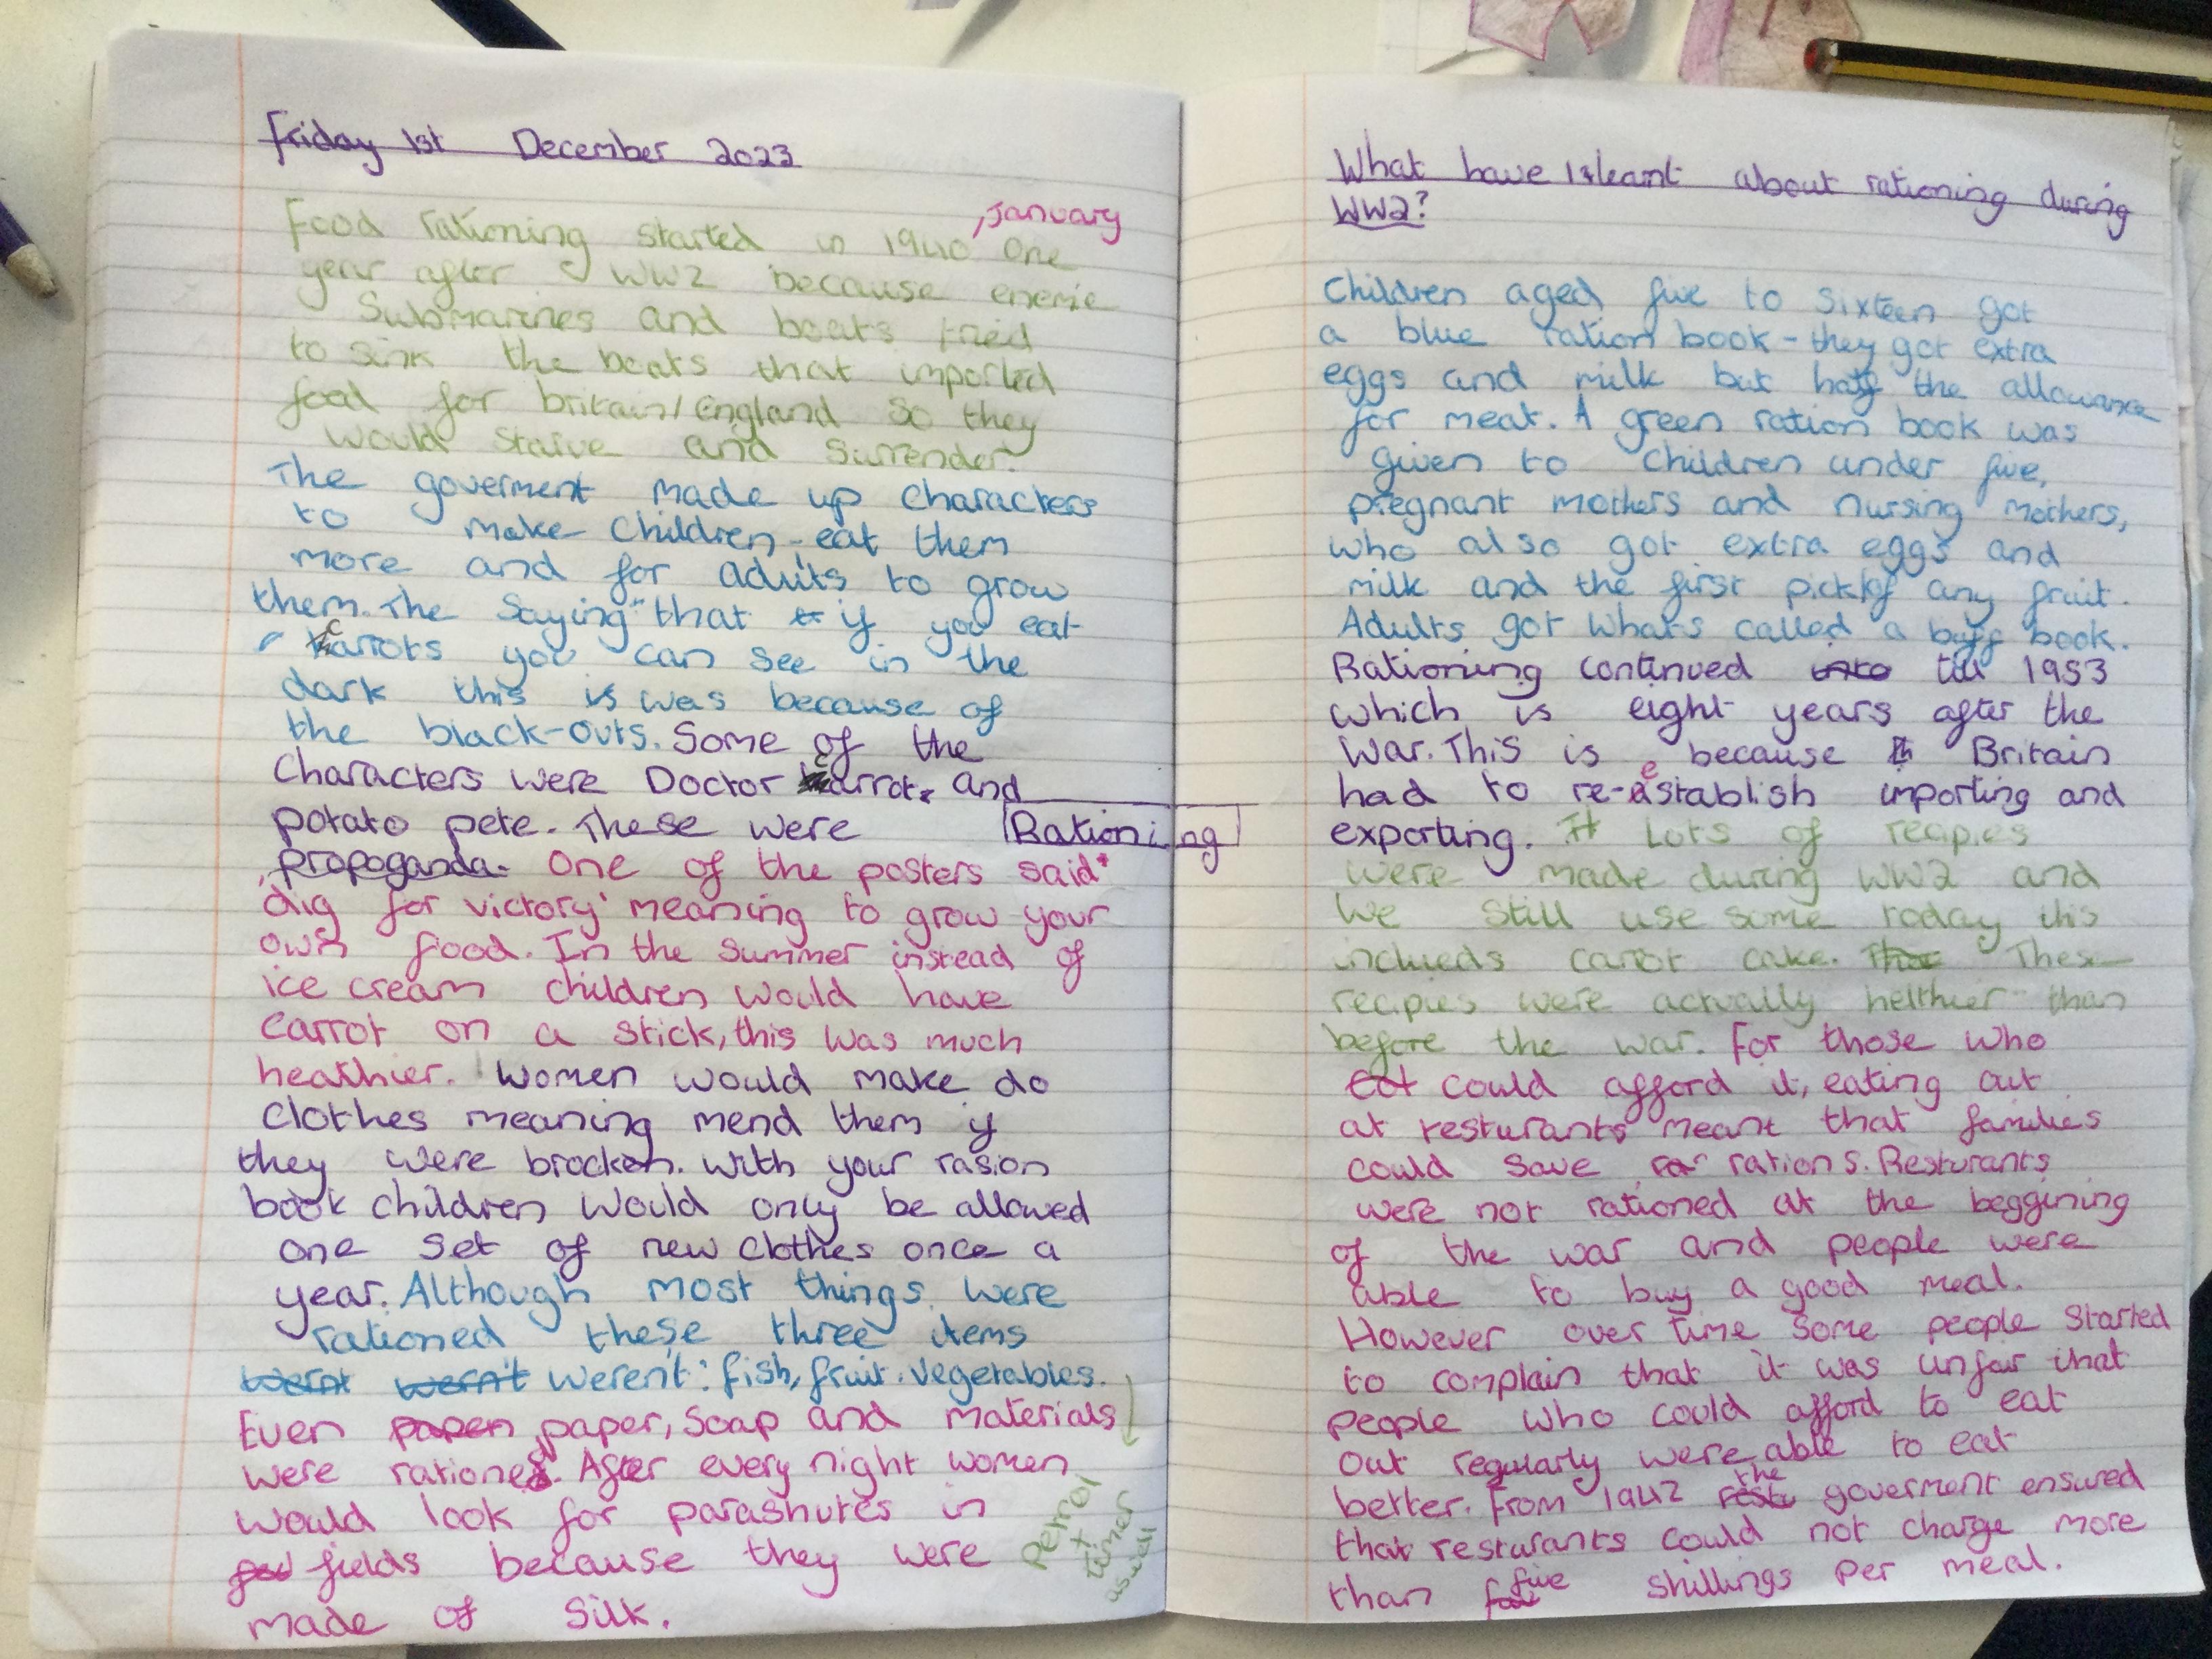 Friday 1st December 2023
Food rationing started in 1940 ,January One
year after WW2 because enemie
Submarines and boats tried
to sink the boats that imported
food for britain/England So they
would starve and Surrender.
The goverment made up characters
to make children eat them
more and for adults to grow
them. The Saying "that if you eat
carrots you can see in the
dark this is was because of
the black-outs. Some of the
characters were Doctor carrot, and
potato pete. These were
propoganda. One of the posters said
'dig for victory' meaning to grow your
own food. In the Summer instead of
ice cream children would have
carrot on a stick, this was much
healthier. Women would make do
clothes meaning mend them if
they were brocken. With your rasion
book children would only be allowed
one set of new clothes once a
year. Although most things were
rationed these three items
wernt wern't weren't: fish, fruit. vegetables.
Even papen paper, Soap and materials
were rationed. After every night women
would look for parashutes in
fields because they were
made of Silk.
petrol
+
timer
aswell
Rationing
What have I learnt about rationing during
WW2?
Children aged five to sixteen got
a blue ration book - they got extra
eggs and milk but half the allowance
for meat. A green ration book was
given to children under five,
pregnant mothers and nursing mothers,
who also got extra eggs and
milk and the first pick of any fruit.
Adults got whats called a buff book.
Rationing continued into till 1953
which is eight years after the
war. This is because Britain
had to re-establish importing and
exporting. It Lots of recipies
were made during WW2 and
we still use some today this
inclueds carrot cake. These
recipies were actually helthier than
before the war. For those who
eat could afford it, eating out
at resturants meant that families
could save rations. Resturants
were not rationed at the beggining
of the war and people were
able to buy a good meal.
However over time some people started
to complain that it was unfair that
people who could afford to eat
out regularly were able to eat
better. From 1942 the goverment ensured
that resturants could not charge more
than five shillings per meal.